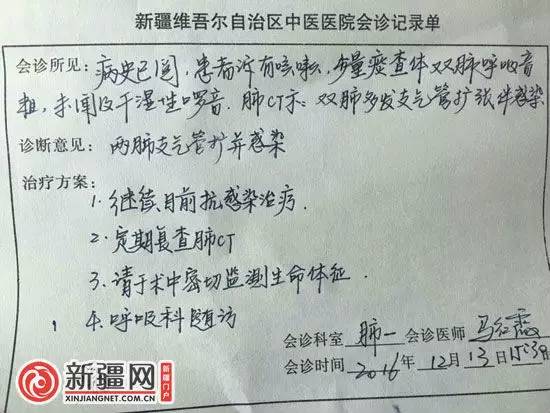 新疆维吾尔自治区中医医院会诊记录单
会诊所见：病史已阅，患者诉有咳嗽，少量痰查体双肺呼吸音
粗，未闻及干湿性啰音．肺CT示：双肺多发支气管扩张伴感染
诊断意见：两肺支气管扩并感染
治疗方案：
1.继续目前抗感染治疗．
2.定期复查肺CT
3.请于术中密切监测生命体征．
4.呼吸科随访
会诊科室 肺一 会诊医师 马红霞
会诊时间 2016年12月13日15:30
新疆网
新疆门户
XINJIANGNET.COM.CN